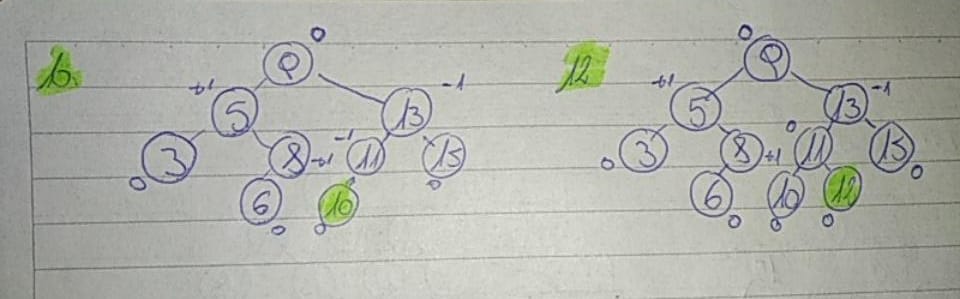 10.
0
9
+1
5
-1
13
3
0
8
+1
-1
11
15
0
6
0
10
0
12
0
9
+1
5
-1
13
3
0
8
+1
0
11
15
0
6
0
10
0
12
0